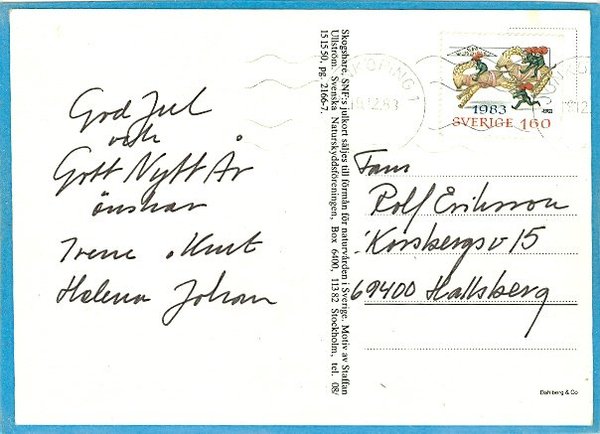 God Jul
och
Gott Nytt År
önskar
Irene Knut
Helena Johan
Skogshare. SNF:s Julkort säljes till förmån för naturvården i Sverige. Motiv av Staffan
Ullström. Svenska Naturskyddsföreningen, Box 6400, 113 82 Stockholm, tel. 08/
15 15 50, pg 2166-7.
KÖPING 1
12.83
1983
SVERIGE 160
Fam
Rolf Eriksson
Korsbergsv 15
69400 Hallsberg
Dahlberg & Co